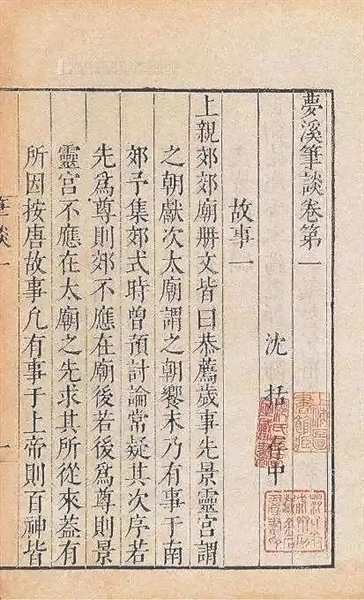 夢溪筆談卷第一
沈括存中
故事一
上親郊郊廟册文皆曰恭薦歲事先景靈宮謂
之朝獻次太廟謂之朝饗末乃有事于南
郊予集郊式時曾預討論常疑其次序若
先為尊則郊不應在廟後若後為尊則景
靈宮不應在太廟之先求其所從來蓋有
所因按唐故事凡有事于上帝則百神皆
筆談一
一